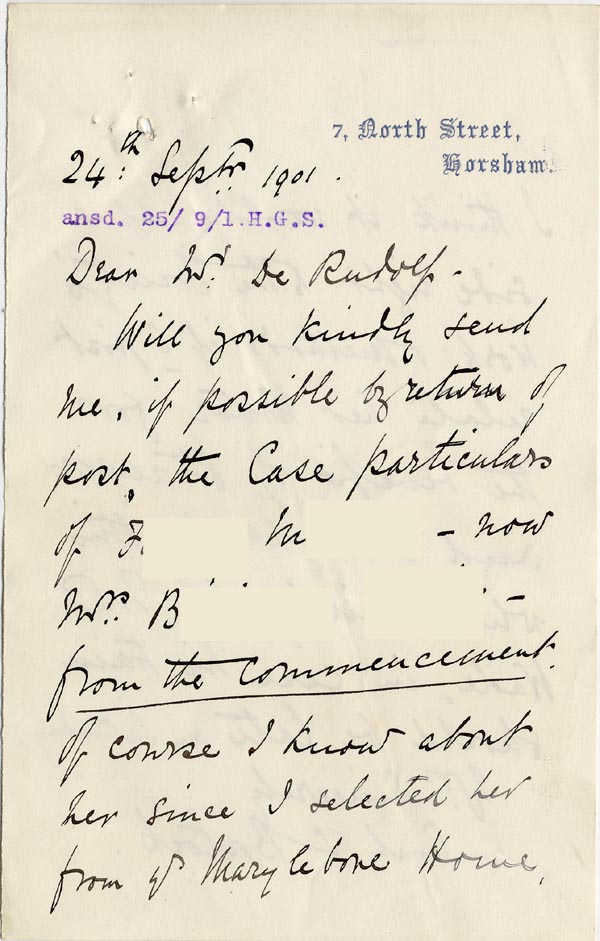 7, North Street,
Horsham.
24th Septr. 1901.
ansd. 25/ 9/1.H.G.S.
Dear Mr. De Rudolf -
Will you kindly send
me, if possible by return of
post, the Case particulars
of F. M - now
Mrs. B -
from the commencement.
Of course I know about
her since I selected her
from yr Marylebone Home,